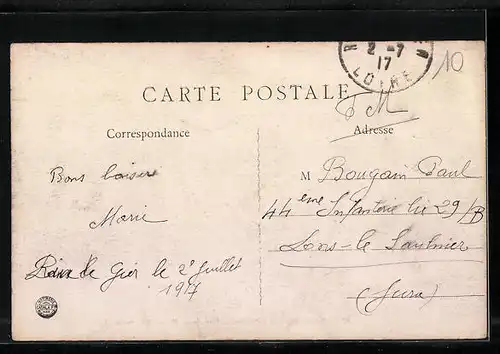 2-7
17
LOIRE
10
CARTE POSTALE
F M
Correspondance
Adresse
Bons baisers
Marie
Rive de Gier le 2 Juillet
1917
M Bougain Paul
44eme Infanterie Cie 29/B
Lons-le Saulnier
(Jura)